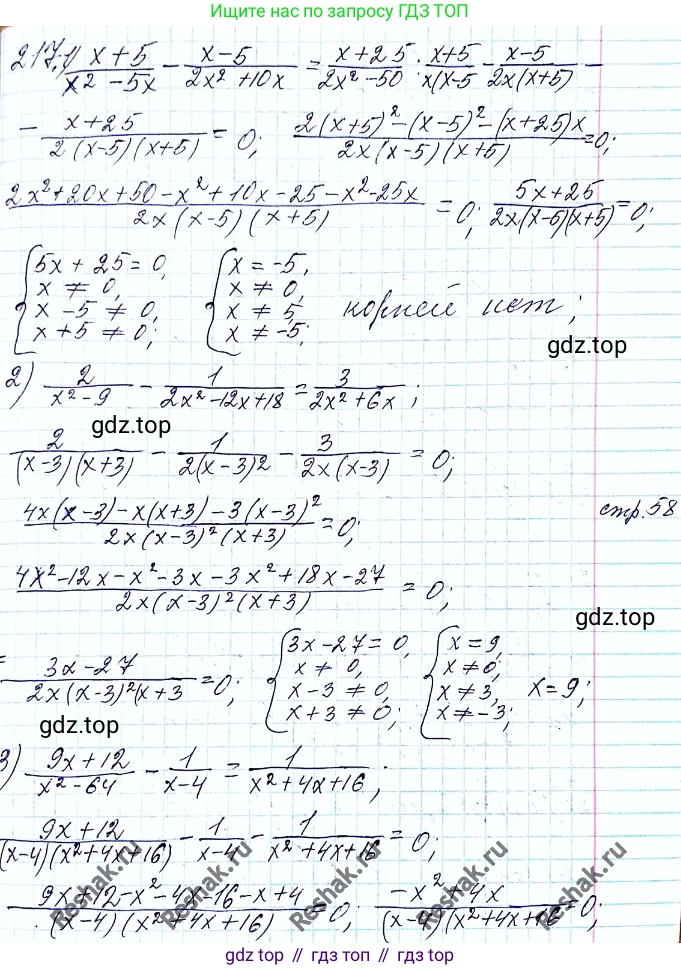 Ищите нас по запросу ГДЗ ТОП
217.1) (x+5)/(x²-5x) - (x-5)/(2x²+10x) = (x+25)/(2x²-50); (x+5)/(x(x-5) - (x-5)/(2x(x+5)) -
- (x+25)/(2(x-5)(x+5)) = 0; (2(x+5)²-(x-5)²-(x+25)x)/(2x(x-5)(x+5)) = 0;
(2x²+20x+50-x²+10x-25-x²-25x)/(2x(x-5)(x+5)) = 0; (5x+25)/(2x(x-5)(x+5)) = 0;
{5x+25=0, {x=-5,
x≠0, x≠0,
x-5≠0, x≠5, корней нет;
x+5≠0; x≠-5;
gdz.top
2) 2/(x²-9) - 1/(2x²-12x+18) = 3/(2x²+6x);
gdz.top
2/((x-3)(x+3)) - 1/(2(x-3)2) - 3/(2x(x-3)) = 0;
(4x(x-3)-x(x+3)-3(x-3)²)/(2x(x-3)²(x+3)) = 0;
стр.58
(4x²-12x-x²-3x-3x²+18x-27)/(2x(x-3)²(x+3)) = 0;
gdz.top
= (3x-27)/(2x(x-3)²(x+3) = 0; {3x-27=0, {x=9,
x≠0, x≠0,
x-3≠0, x≠3, x=9;
x+3≠0; x≠-3;
gdz.top
3) (9x+12)/(x²-64) - 1/(x-4) = 1/(x²+4x+16);
(9x+12)/((x-4)(x²+4x+16)) - 1/(x-4) - 1/(x²+4x+16) = 0;
(9x+12-x²-4x-16-x+4)/((x-4)(x²+4x+16)) = 0; (-x²+4x)/((x-4)(x²+4x+16) = 0;
Reshak.ru
Reshak.ru
Reshak.ru
Reshak.ru
Reshak.ru
gdz.top // гдз.топ // gdz.top // гдз.топ